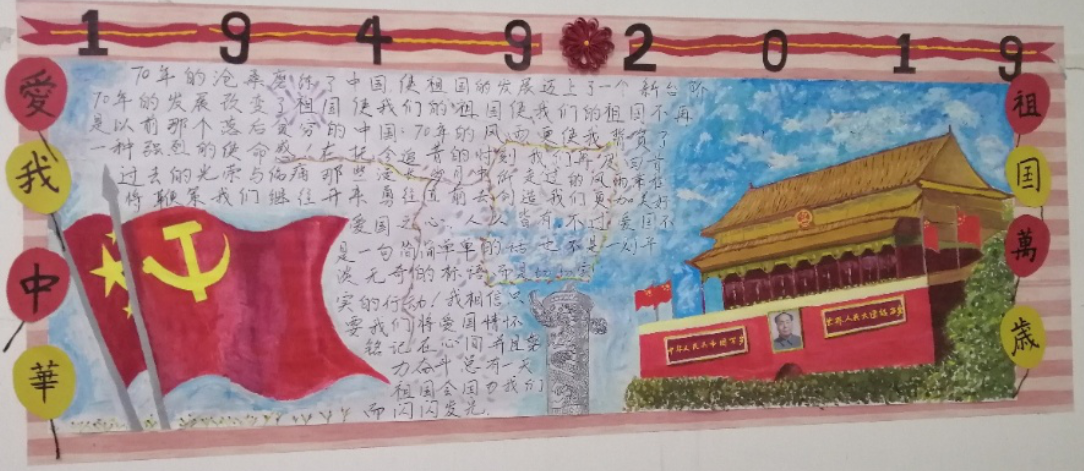 1949 2019
愛我中華
70年的沧桑磨练了中国,使祖国的发展迈上了一个新台阶
70年的发展改变了祖国使我们的祖国使我们的祖国不再
是以前那个落后 的中国:70年的风雨更使我背负了
一种强烈的使命感!在抚今追昔的时刻我们再次回首
过去的光荣与伤痛那些 岁月中所走过的风雨
将鞭策我们继往开来勇往直前去创造我们更加美好
爱国之心,人人皆有,不过爱国不
是一句简简单单的话,也不是一则平
淡无奇的标语,而是
实的行动!我相信只
要我们将爱国情怀
铭记在心间并且努
力奋斗总有一天
祖国会因为我们
而闪闪发光.
中华人民共和国万岁
世界人民大团结万岁
祖国萬歳